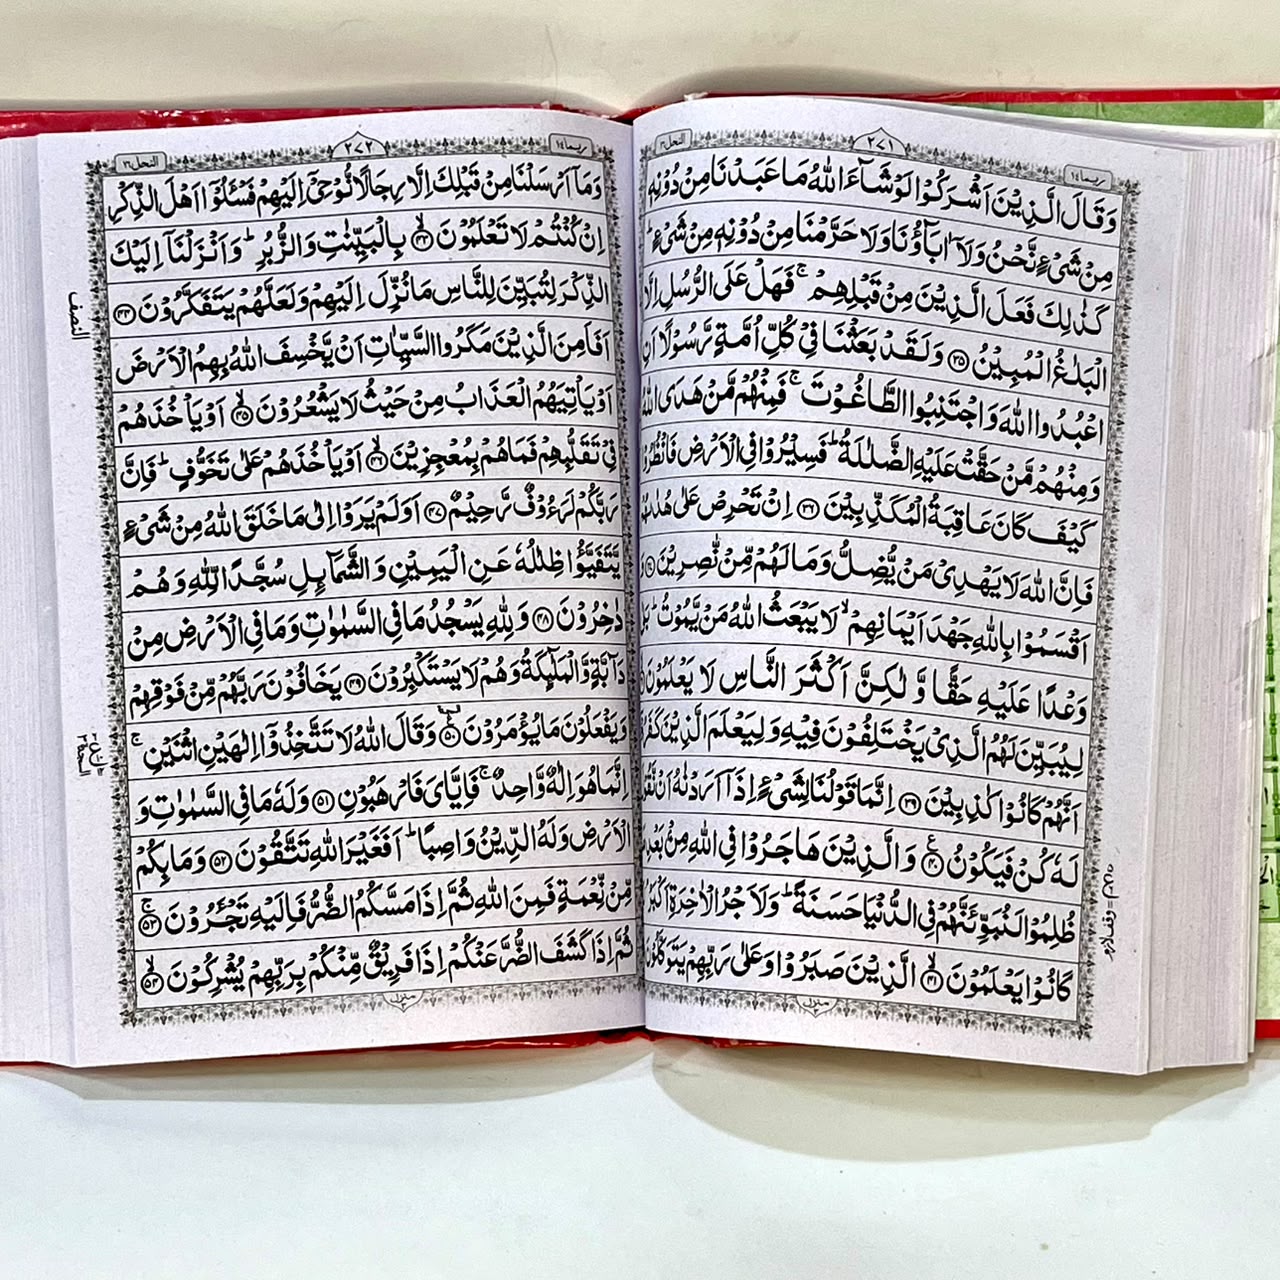 النحل ١٦
٢٧١
ربما ١٤
وَقَالَ الَّذِيْنَ اَشْرَكُوْا لَوْ شَآءَ اللّٰهُ مَا عَبَدْنَا مِنْ دُوْنِهٖ
مِنْ شَیْءٍ نَّحْنُ وَلَاۤ اٰبَآؤُنَا وَلَا حَرَّمْنَا مِنْ دُوْنِهٖ مِنْ شَیْءٍ ؕ
كَذٰلِكَ فَعَلَ الَّذِيْنَ مِنْ قَبْلِهِمْ ۚ فَهَلْ عَلَى الرُّسُلِ اِلَّا
الْبَلٰغُ الْمُبِيْنُ ﴿۳۵﴾ وَلَقَدْ بَعَثْنَا فِيْ كُلِّ اُمَّةٍ رَّسُوْلًا اَنِ
اعْبُدُوا اللّٰهَ وَاجْتَنِبُوا الطَّاغُوْتَ ۚ فَمِنْهُمْ مَّنْ هَدَى اللّٰهُ
وَمِنْهُمْ مَّنْ حَقَّتْ عَلَيْهِ الضَّلٰلَةُ ؕ فَسِيْرُوْا فِي الْاَرْضِ فَانْظُرُوْا
كَيْفَ كَانَ عَاقِبَةُ الْمُكَذِّبِيْنَ ﴿۳۶﴾ اِنْ تَحْرِصْ عَلٰى هُدٰىهُمْ
فَاِنَّ اللّٰهَ لَا يَهْدِيْ مَنْ يُّضِلُّ وَمَا لَهُمْ مِّنْ نّٰصِرِيْنَ
اَقْسَمُوْا بِاللّٰهِ جَهْدَ اَيْمَانِهِمْ ۙ لَا يَبْعَثُ اللّٰهُ مَنْ يَّمُوْتُ ؕ بَلٰى
وَعْدًا عَلَيْهِ حَقًّا وَّلٰكِنَّ اَكْثَرَ النَّاسِ لَا يَعْلَمُوْنَ
لِيُبَيِّنَ لَهُمُ الَّذِيْ يَخْتَلِفُوْنَ فِيْهِ وَلِيَعْلَمَ الَّذِيْنَ كَفَرُوْۤا
اَنَّهُمْ كَانُوْا كٰذِبِيْنَ ﴿۳۹﴾ اِنَّمَا قَوْلُنَا لِشَیْءٍ اِذَاۤ اَرَدْنٰهُ اَنْ نَّقُوْلَ
لَهٗ كُنْ فَيَكُوْنُ ﴿۴۰﴾ وَالَّذِيْنَ هَاجَرُوْا فِي اللّٰهِ مِنْۢ بَعْدِ
ظُلِمُوْا لَنُبَوِّئَنَّهُمْ فِي الدُّنْيَا حَسَنَةً ؕ وَلَاَجْرُ الْاٰخِرَةِ اَكْبَرُ
كَانُوْا يَعْلَمُوْنَ ﴿۴۱﴾ الَّذِيْنَ صَبَرُوْا وَعَلٰى رَبِّهِمْ يَتَوَكَّلُوْنَ
منزل ٣
وقف لازم
النحل ١٦
٢٧٢
ربما ١٤
وَمَاۤ اَرْسَلْنَا مِنْ قَبْلِكَ اِلَّا رِجَالًا نُّوْحِيْۤ اِلَيْهِمْ فَسْـَٔلُوْۤا اَهْلَ الذِّكْرِ
اِنْ كُنْتُمْ لَا تَعْلَمُوْنَ ﴿۴۳﴾ بِالْبَيِّنٰتِ وَالزُّبُرِ ؕ وَاَنْزَلْنَاۤ اِلَيْكَ
الذِّكْرَ لِتُبَيِّنَ لِلنَّاسِ مَا نُزِّلَ اِلَيْهِمْ وَلَعَلَّهُمْ يَتَفَكَّرُوْنَ ﴿۴۴﴾
اَفَاَمِنَ الَّذِيْنَ مَكَرُوا السَّيِّاٰتِ اَنْ يَّخْسِفَ اللّٰهُ بِهِمُ الْاَرْضَ
اَوْ يَاْتِيَهُمُ الْعَذَابُ مِنْ حَيْثُ لَا يَشْعُرُوْنَ ﴿۴۵﴾ اَوْ يَاْخُذَهُمْ
فِيْ تَقَلُّبِهِمْ فَمَا هُمْ بِمُعْجِزِيْنَ ﴿۴۶﴾ اَوْ يَاْخُذَهُمْ عَلٰى تَخَوُّفٍ ؕ فَاِنَّ
رَبَّكُمْ لَرَءُوْفٌ رَّحِيْمٌ ﴿۴۷﴾ اَوَلَمْ يَرَوْا اِلٰى مَا خَلَقَ اللّٰهُ مِنْ شَیْءٍ
يَّتَفَيَّؤُا ظِلٰلُهٗ عَنِ الْيَمِيْنِ وَالشَّمَآئِلِ سُجَّدًا لِّلّٰهِ وَهُمْ
دٰخِرُوْنَ ﴿۴۸﴾ وَلِلّٰهِ يَسْجُدُ مَا فِي السَّمٰوٰتِ وَمَا فِي الْاَرْضِ مِنْ
دَآبَّةٍ وَّالْمَلٰٓئِكَةُ وَهُمْ لَا يَسْتَكْبِرُوْنَ ﴿۴۹﴾ يَخَافُوْنَ رَبَّهُمْ مِّنْ فَوْقِهِمْ
وَيَفْعَلُوْنَ مَا يُؤْمَرُوْنَ ﴿۵۰﴾ وَقَالَ اللّٰهُ لَا تَتَّخِذُوْۤا اِلٰهَيْنِ اثْنَيْنِ ۚ
اِنَّمَا هُوَ اِلٰهٌ وَّاحِدٌ ۚ فَاِيَّايَ فَارْهَبُوْنِ ﴿۵۱﴾ وَلَهٗ مَا فِي السَّمٰوٰتِ وَ
الْاَرْضِ وَلَهُ الدِّيْنُ وَاصِبًا ؕ اَفَغَيْرَ اللّٰهِ تَتَّقُوْنَ ﴿۵۲﴾ وَمَا بِكُمْ
مِّنْ نِّعْمَةٍ فَمِنَ اللّٰهِ ثُمَّ اِذَا مَسَّكُمُ الضُّرُّ فَاِلَيْهِ تَجْـَٔرُوْنَ ﴿۵۳﴾
ثُمَّ اِذَا كَشَفَ الضُّرَّ عَنْكُمْ اِذَا فَرِيْقٌ مِّنْكُمْ بِرَبِّهِمْ يُشْرِكُوْنَ ﴿۵۴﴾
منزل ٣
النصف
السجدة ٣